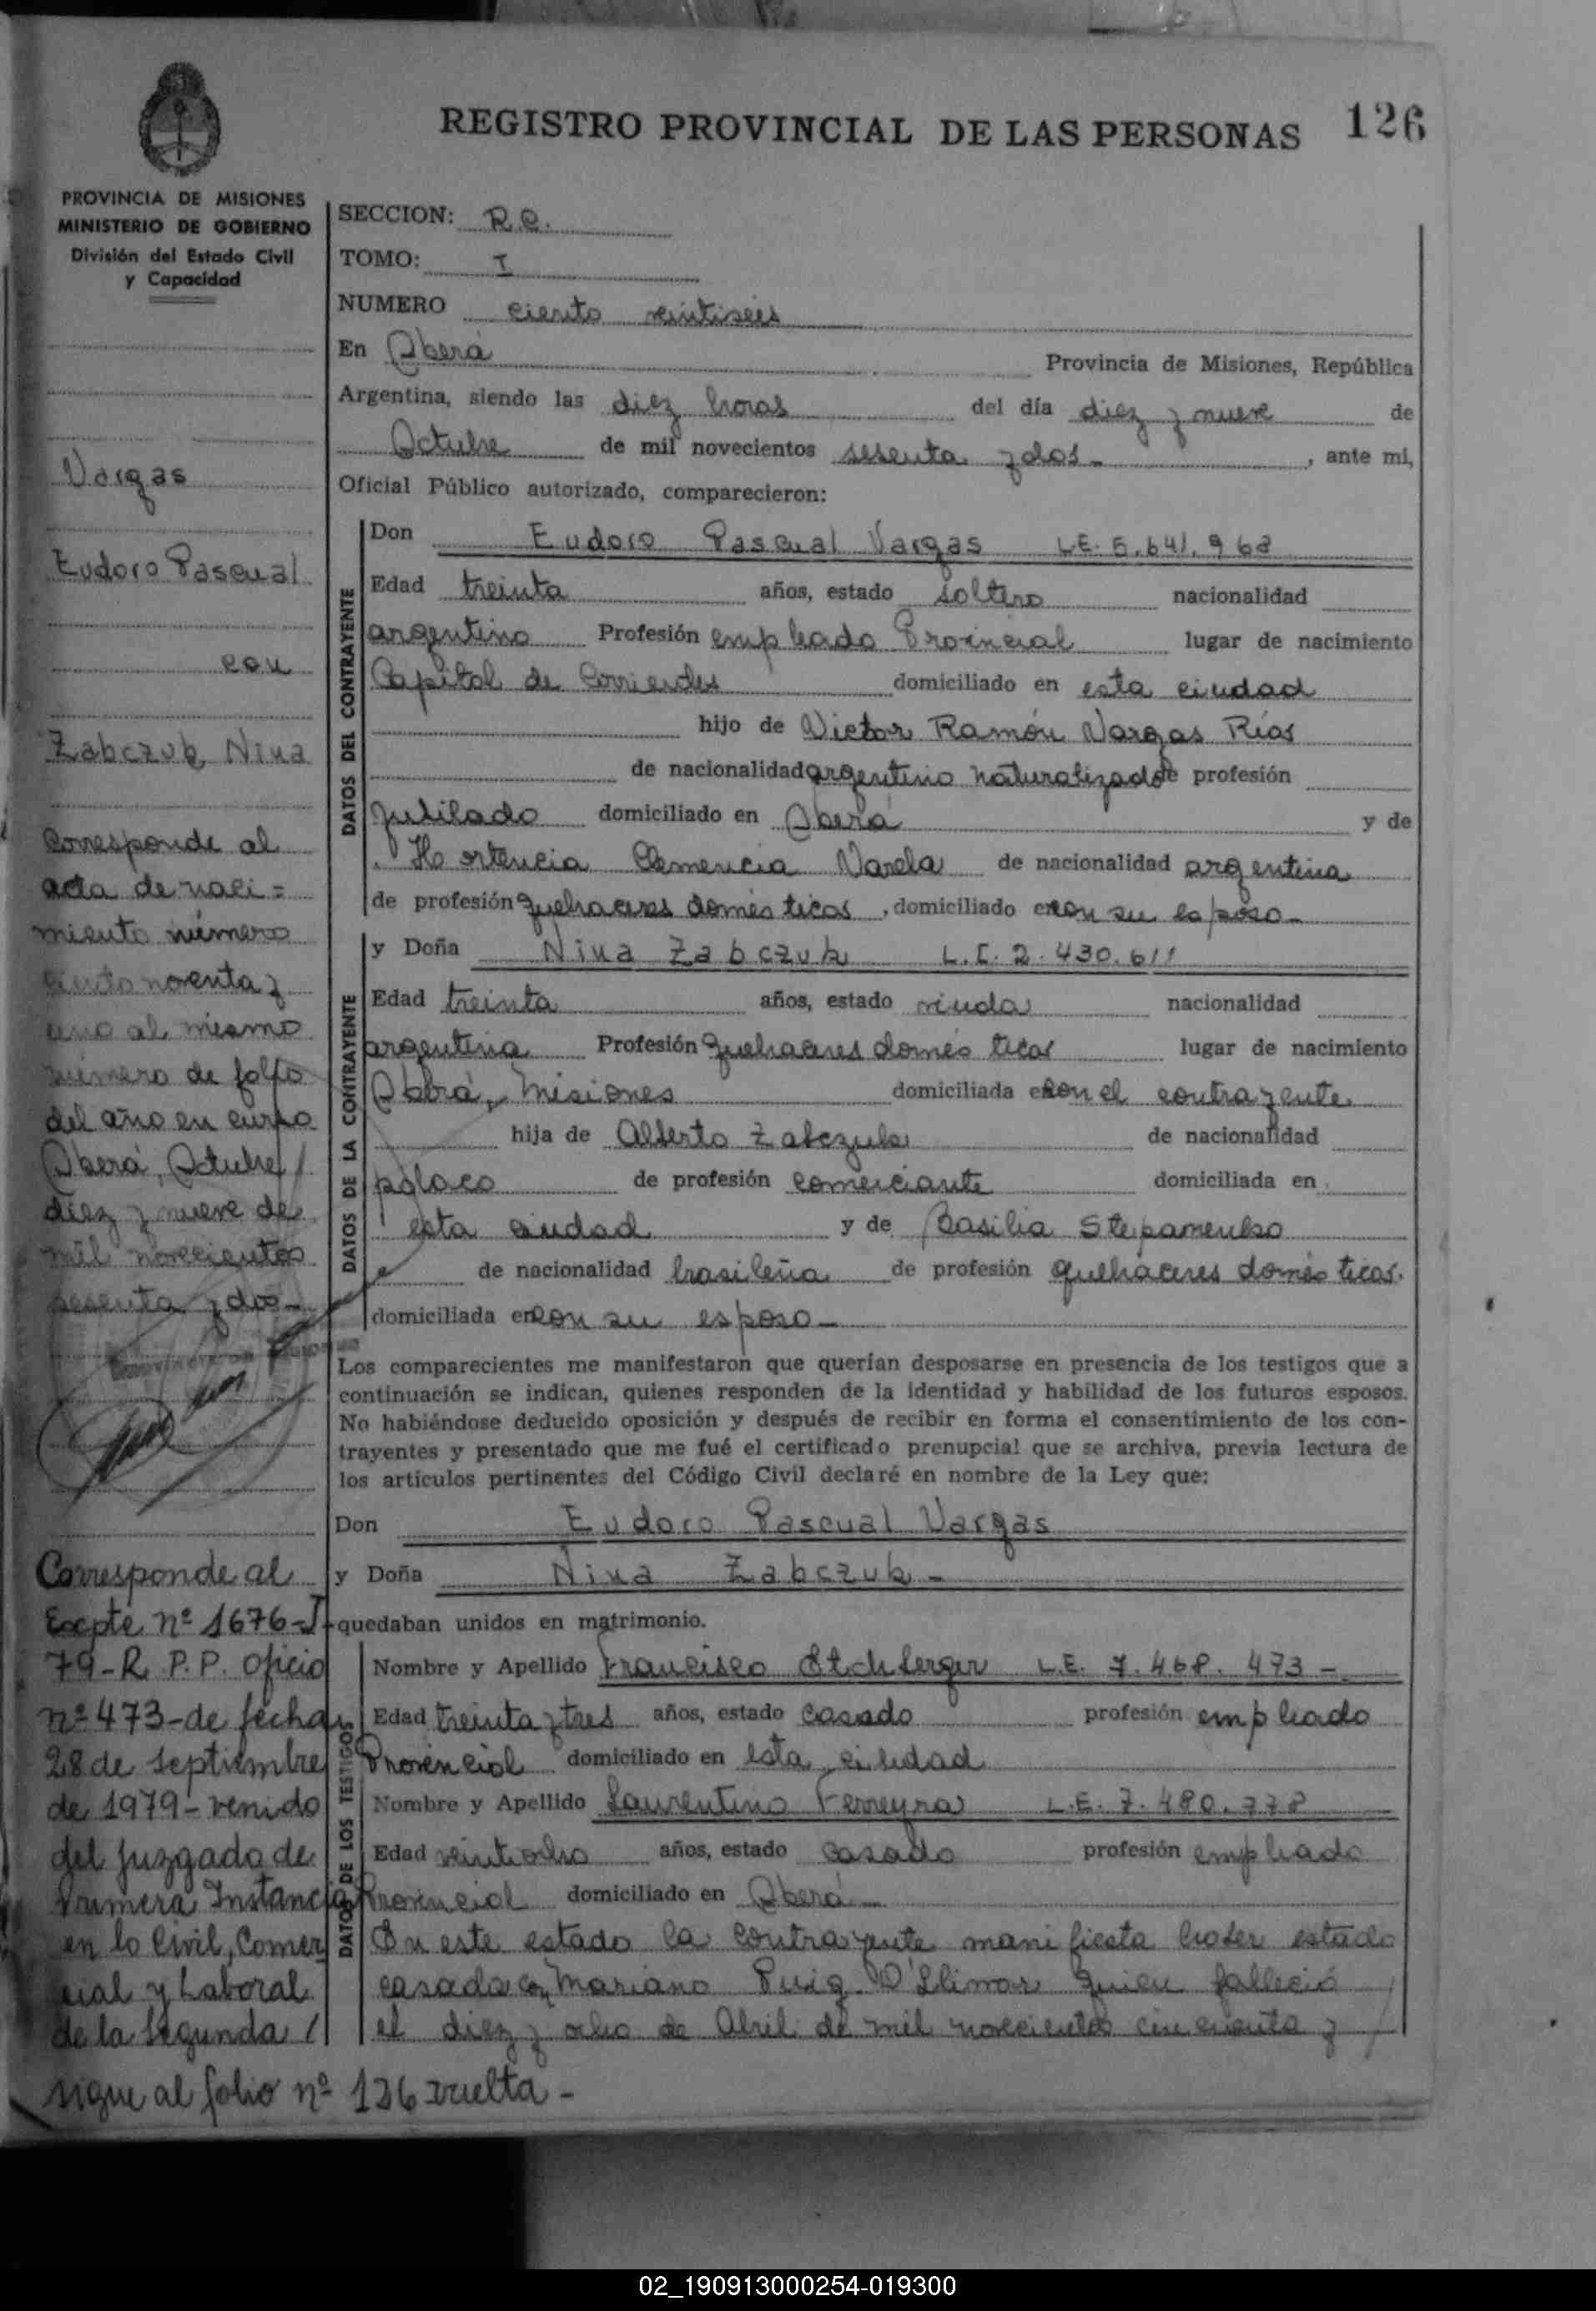 REGISTRO PROVINCIAL DE LAS PERSONAS 126
PROVINCIA DE MISIONES
MINISTERIO DE GOBIERNO
División del Estado Civil
y Capacidad
Vargas
Eudoro Pascual
con
Zabczuk, Nina
Corresponde al
acta de naci=
miento número
ciento noventa y
uno al mismo
número de folio
del año en curso
Oberá, Octubre
diez y nueve de
mil novecientos
sesenta y dos-
Corresponde al
Excpte nº 1676-I-
79-R. P.P. Oficio
nº 473-de fecha
28 de septiembre
de 1979- venido
del juzgado de
Primera Instancia
en lo Civil, Comer
cial y Laboral
de la segunda /
sigue al folio nº 126 vuelta-
SECCION: R.C.
TOMO: I
NUMERO ciento veintiseis
En Oberá Provincia de Misiones, República
Argentina, siendo las diez horas del día diez y nueve de
Octubre de mil novecientos sesenta y dos- , ante mi,
Oficial Público autorizado, comparecieron:
DATOS DEL CONTRAYENTE
Don Eudoro Pascual Vargas L.E. 5.641.968
Edad treinta años, estado soltero nacionalidad
argentino Profesión empleado Provincial lugar de nacimiento
Capital de Corrientes domiciliado en esta ciudad
hijo de Victor Ramón Vargas Ríos
de nacionalidad argentino naturalizado de profesión
jubilado domiciliado en Oberá y de
Hortencia Clemencia Varela de nacionalidad argentina
de profesión quehaceres domésticos , domiciliado en con su esposo-
DATOS DE LA CONTRAYENTE
y Doña Nina Zabczuk L.C. 2.430.611
Edad treinta años, estado viuda nacionalidad
argentina Profesión quehaceres domésticos lugar de nacimiento
Oberá, Misiones domiciliada en con el contrayente
hija de Alberto Zabczuk de nacionalidad
polaco de profesión comerciante domiciliada en
esta ciudad y de Basilia Stepamenko
de nacionalidad brasileña de profesión quehaceres domésticos.
domiciliada en con su esposo-
Los comparecientes me manifestaron que querían desposarse en presencia de los testigos que a
continuación se indican, quienes responden de la identidad y habilidad de los futuros esposos.
No habiéndose deducido oposición y después de recibir en forma el consentimiento de los con-
trayentes y presentado que me fué el certificado prenupcial que se archiva, previa lectura de
los artículos pertinentes del Código Civil declaré en nombre de la Ley que:
Don Eudoro Pascual Vargas
y Doña Nina Zabczuk-
quedaban unidos en matrimonio.
DATOS DE LOS TESTIGOS
Nombre y Apellido Francisco Etchberger L.E. 7.468.473-
Edad treinta y tres años, estado casado profesión empleado
Provincial domiciliado en esta ciudad
Nombre y Apellido Laurentino Ferreyra L.E. 7.480.778
Edad veintiocho años, estado casado profesión empleado
Provincial domiciliado en Oberá-
En este estado la contrayente manifiesta haber estado
casada con Mariano Puig O'Llimos quien falleció
el diez y ocho de Abril de mil novecientos cincuenta y
02_190913000254-019300